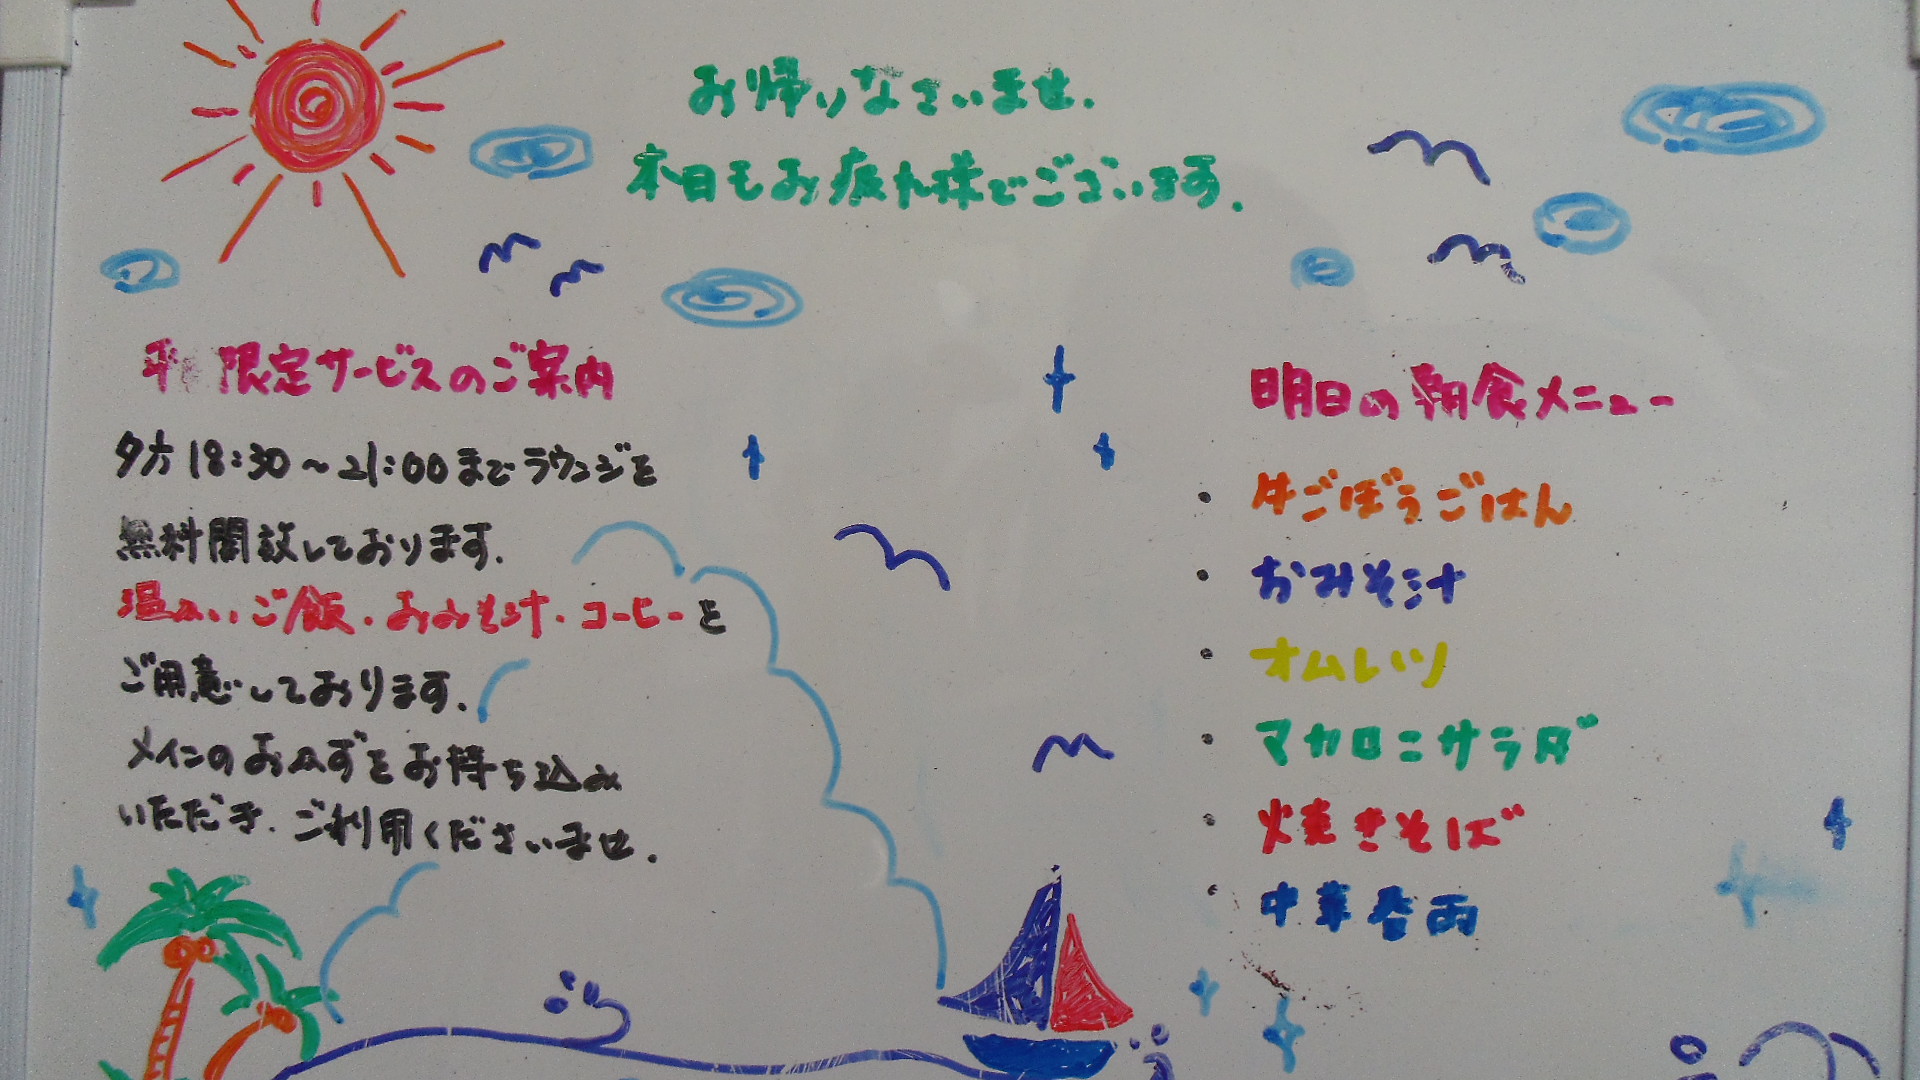 お帰りなさいませ.
本日もお疲れ様でございます.
平 限定サービスのご案内
夕方18:30～21:00までラウンジを
無料開放しております.
温かいご飯・おみそ汁・コーヒーを
ご用意しております.
メインのおかずをお持ち込み
いただき.ご利用くださいませ.
明日の朝食メニュー
・牛ごぼうごはん
・おみそ汁
・オムレツ
・マカロニサラダ
・焼きそば
・中華春雨